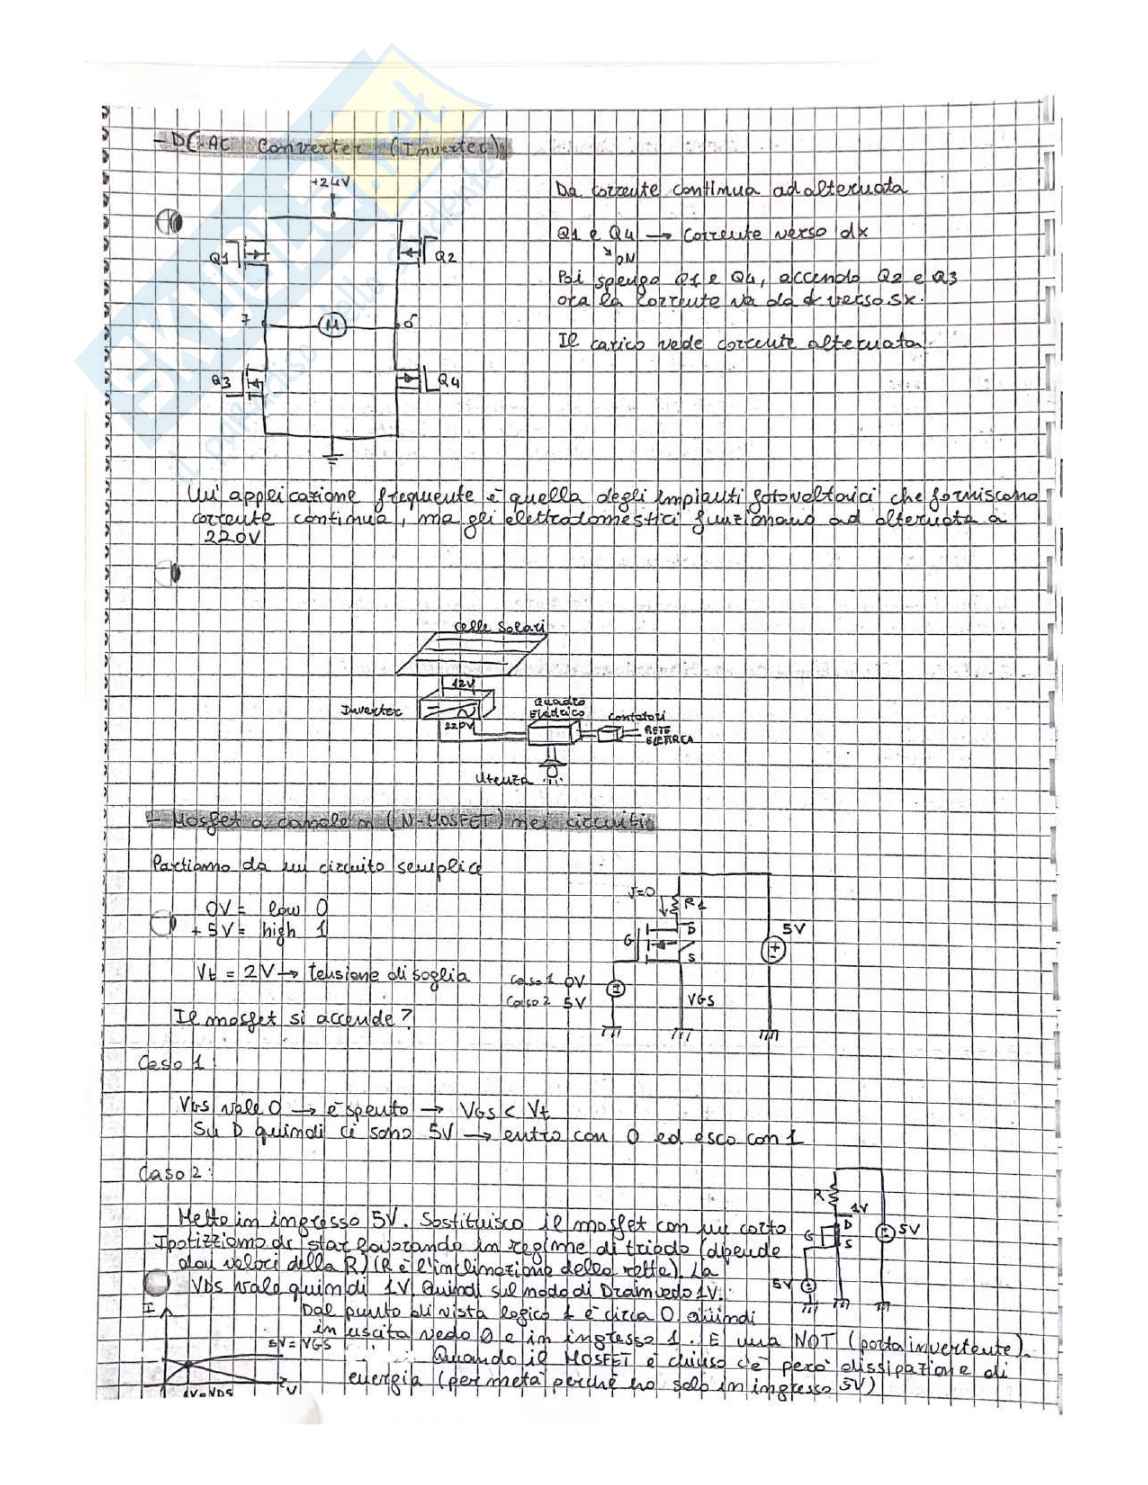 - DC-AC Converter (Inverter)
+24V
Da corrente continua ad alternata
Q1 e Q4 → corrente verso dx
ON
Q1
Q2
Poi spengo Q1 e Q4, accendo Q2 e Q3
ora la corrente va da dx verso sx.
7
M
Il carico vede corrente alternata.
Q3
Q4
Un'applicazione frequente è quella degli impianti fotovoltaici che forniscono
corrente continua, ma gli elettrodomestici funzionano ad alternata a
220V
Celle Solari
12V
Inverter
220V
Quadro
Elettrico
Contatori
RETE
ELETTRICA
Utenza
- Mosfet a canale n (N-MOSFET) nei circuiti
Partiamo da un circuito semplice
0V = low 0
+5V = high 1
Vt = 2V → tensione di soglia
Il mosfet si accende?
I=0
R1
D
G
S
5V
Caso 1 0V
Caso 2 5V
VGS
Caso 1
VGS vale 0 → è spento → VGS < Vt
Su D quindi ci sono 5V → entro con 0 ed esco con 1
Caso 2:
Metto in ingresso 5V. Sostituisco il mosfet con un corto
Ipotizziamo di star lavorando in regime di triodo (dipende
dai valori della R) (R è l'inclinazione della retta). La
VDS vale quindi 1V. Quindi sul nodo di Drain vedo 1V.
Dal punto di vista logico 1 è circa 0 quindi
in uscita vedo 0 e in ingresso 1. È una NOT (porta invertente).
Quando il MOSFET è chiuso c'è però dissipazione di
energia (per metà perché ho solo in ingresso 5V)
R
1V
D
G
S
5V
5V
I
5V=VGS
1V=VDS
V